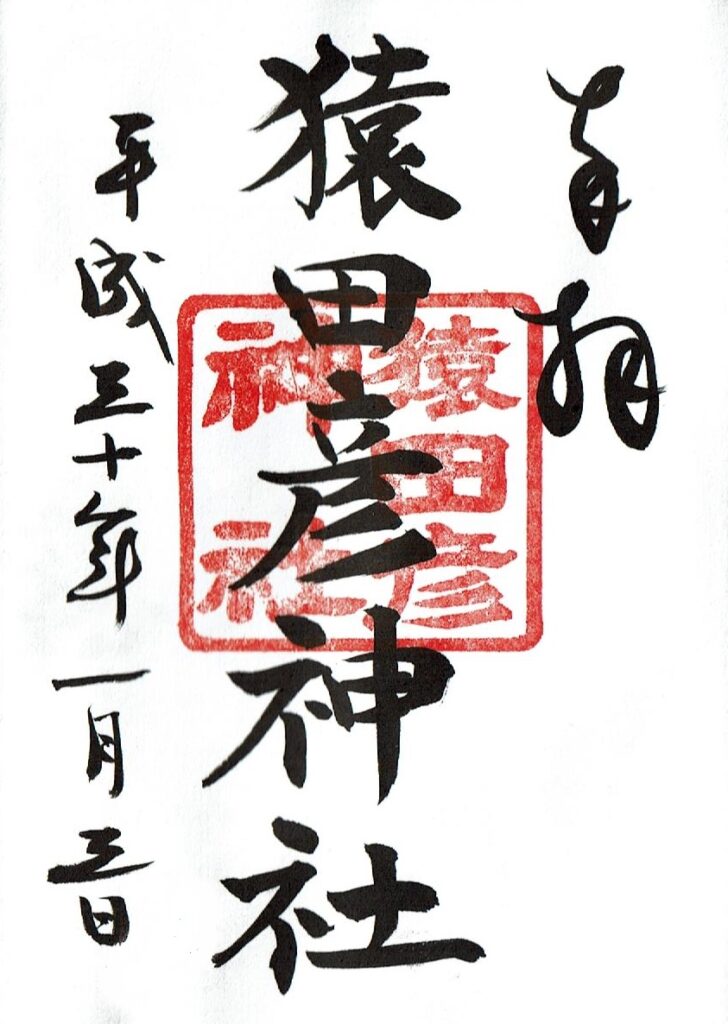 奉拝
猿田彦神社
猿田彦
神社
平成三十年一月三日